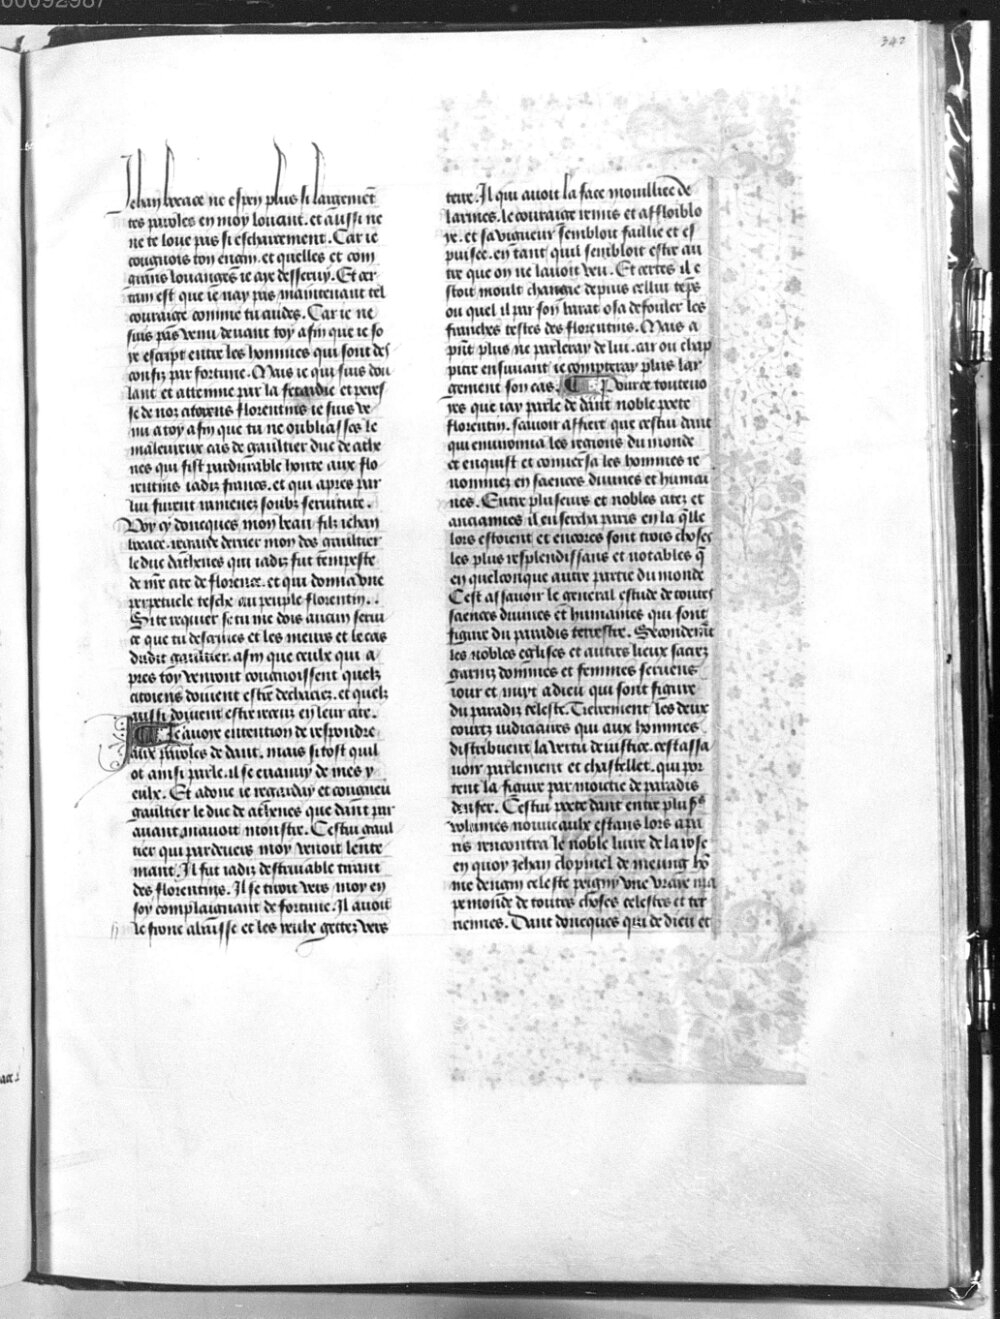 00092987
342
Jehan bocace ne espen plus si largement
tes paroles en moy louant. et aussi ne
ne te loue pas si escharcement. Car ie
congnois ton engin. et quelles et com
grans louanges ie aye desseruy. Et cer
tain est que ie nay pas maintenant tel
couraige comme tu cuides. Car ie ne
suis pas venu deuant toy afin que ie so
ye escript entre les hommes qui sont des
confiz par fortune. Mais ie qui suis dou
lant et attemne par la fetardie et peres
se de noz citoyens florentins ie suis ve
nu a toy afin que tu ne oubliasses le
maleureux cas de gaultier duc de athe
nes qui fist pardurable honte aux flo
rentins iadiz francs. et qui apres par
lui furent ramenez soubz seruitute.
Voy cy doncques mon beau filz iehan
bocace. regarde derrier moy dos gaultier
le duc dathenes qui iadiz fut tempeste
de nre cite de florence. et qui donna vne
perpetuele tesche au peuple florentin.
Si te requier se tu me dois aucun serui
ce que tu descriues et les meurs et le cas
dudit gaultier. afin que ceulx qui a
pres toy venront congnoissent quelz
citoiens doiuent estre dechaciez. et quelz
aussi doiuent estre receuz en leur cite.
Ie auoye entention de respondre
aux paroles de dant. mais si tost quil
ot ainsi parle. il se euanuy de mes y
eulx. Et adonc ie regarday et congneu
gaultier le duc de athenes que dant par
auant mauoit monstre. Cestui gaul
tier qui pardeuers moy venoit lente
mant. Il fut iadiz destruiable tirant
des florentins. Il se tiroit vers moy en
soy complaignant de fortune. Il auoit
le front abaisse et les yeulx gettez vers
terre. Il qui auoit la face mouilliee de
larmes. le couraige remis et affloiblo
ye. et sa vigueur sembloit faillie et es
puisee. en tant quil sembloit estre au
tre que on ne lauoit veu. Et certes il e
stoit moult changie depuis cellui teps
ou quel il par son barat osa defouler les
franches testes des florentins. Mais a
pnt plus ne parleray de lui. car ou chap
pitre ensuiuant ie compteray plus lar
gement son cas. Pource touteuo
yes que iay parle de dant noble poete
florentin. sauoir affiert que cestui dant
qui enuironna les regions du monde
et enquist et conuersa les hommes re
nommez en sciences diuines et humai
nes. Entre pluseurs et nobles citez et
anciannes il ensercha paris en la qlle
lors estoient et encores sont trois choses
les plus resplendissans et notables q
en quelconque autre partie du monde
Cest assauoir le general estude de toutes
sciences diuines et humaines qui sont
figure du paradis terrestre. Secondemt
les nobles eglises et autres lieux sacrez
garniz dommes et femmes seruens
iour et nuyt a dieu qui sont figure
du paradiz celeste. Tiercement les deux
courtz iudiciaires qui aux hommes
distribuent la vertu de iustice. cest assa
uoir parlement et chastellet. qui por
tent la figure par moictie de paradis
denfer. Cestui poete dant entre plusrs
volumes nouueaulx estans lors a pa
ris rencontra le noble liure de la rose
en quoy Jehan clopinel de meung ho
me dengin celeste peigny vne vraye ma
pemonde de toutes choses celestes et ter
riennes. Dant doncques qui de dieu et